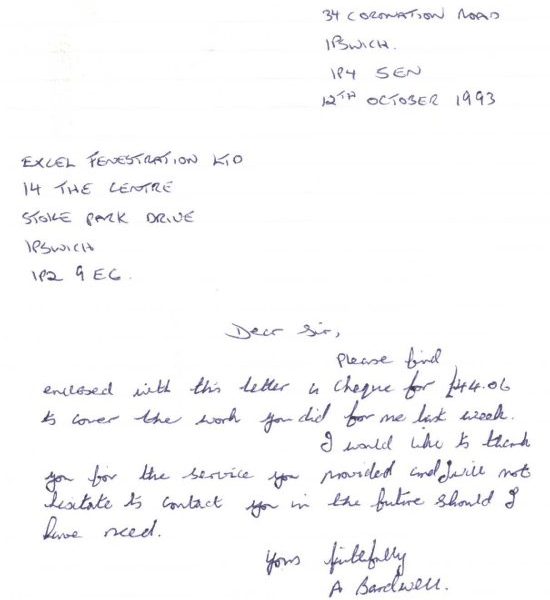 34 CORONATION ROAD
IPSWICH.
IP4 5EN
12TH OCTOBER 1993
EXCEL FENESTRATION LTD
14 THE CENTRE
STOKE PARK DRIVE
IPSWICH
IP2 9EG.
Dear Sir,
Please find
enclosed with this letter a cheque for £44.06
to cover the work you did for me last week.
I would like to thank
you for the service you provided and I will not
hesitate to contact you in the future should I
have need.
Yours faithfully
A Bardwell.